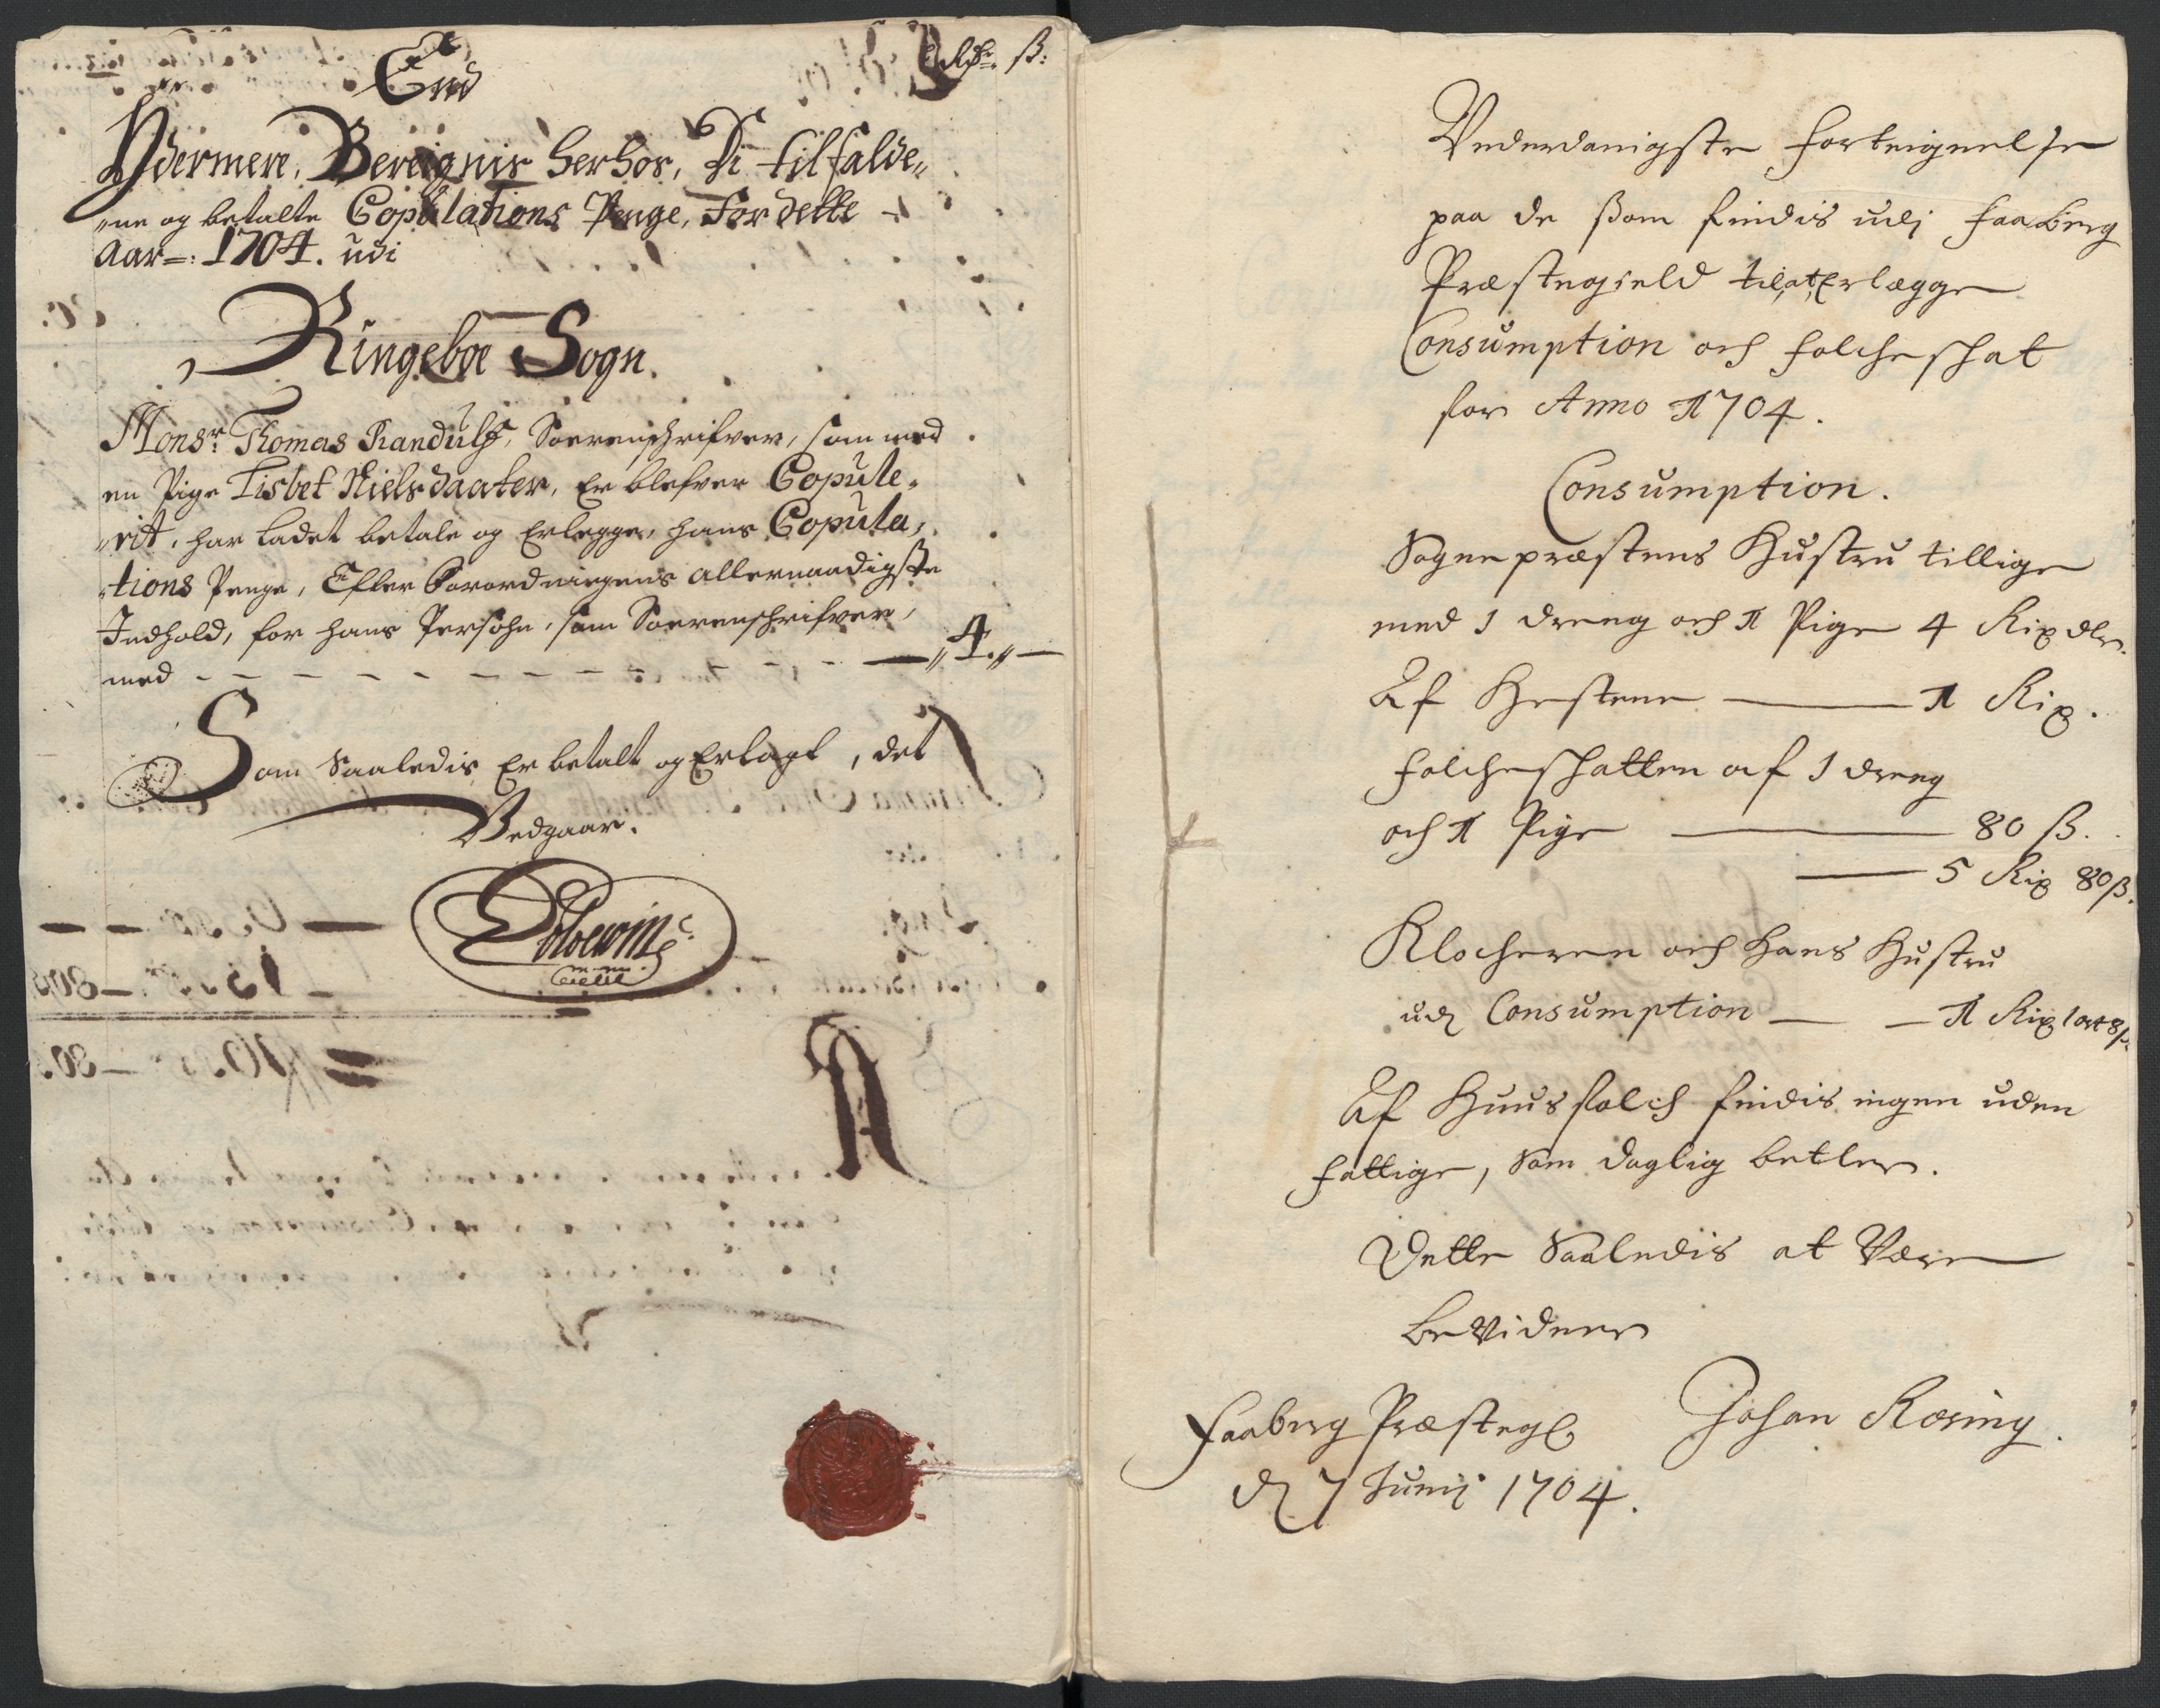 Rdr. ß:
End
Ydermere, Bereignis herhos, Di tilfalde„
„ne og betalte Copulations Penge, for dette
Aar=: 1704. udi
Ringeboe Sogn.
Monsr. Thomas Randulf, Sorenschrifver, som med
en Pige Lisbet Nielsdaater, Er blefven Copule„
„rit, har ladet betale og Erlegge, hans Copula„
„tions Penge, Efter Forordningens allernaadigste
Indhold, for hans Persohn, som Sorenschrifver,
med - - - - - - - - - „4.„ —
Som Saaledis Er betalt og Erlagt, det
Vedgaar.
Vnderdanigste forteignelse
paa de ßom findis udj Faaberg
Præstegield til at Erlægge
Consumption och folcheschat
for Anno 1704.
Consumption.
Sognepræstens Hustru tillige
med 1 dreng och 1 Pige 4 Rixdlr.
Af Hestene — 1 Rix.
Folcheschatten af 1 dreng
och 1 Pige — 80 ß.
— 5 Rix 80 ß.
Klocheren och Hans Hustru
udj Consumption — — 1 Rix 1 ort 8 ß
Af Huusfolch findis ingen uden
fattige, som daglig betler.
Dette Saaledis at Være
beVidner
Faaberg Præsteg. Johan Koring.
d 7 Junij 1704.